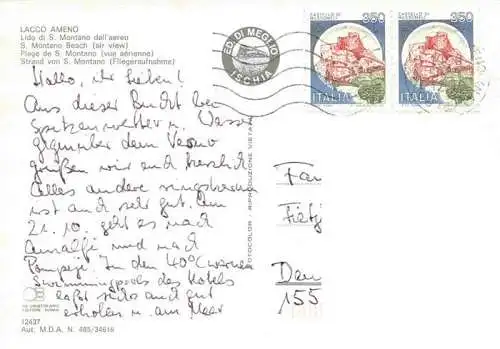 LACCO AMENO
Lido di S. Montano dall'aereo
S. Montano Beach (air view)
Plage de S. Montano (vue aérienne)
Strand von S. Montano (Fliegeraufnahme)
ED. DI MEGLIO
ISCHIA
350
350
ITALIA
ITALIA
Hallo, ihr Lieben!
Aus dieser Bucht bei
Spitzenwetter u. Wasser
gegenüber dem Vesuv
grüßen wir euch herzlich
Alles andere ringsherum
ist auch sehr gut. Am
21.10. geht es nach
Amalfi und nach
Pompeji. In den 40°C warmen
Swimmingpools des Hotels
läßt sichs auch gut
erholen u. am Meer
FOTOCOLOR - RIPRODUZIONE VIETATA
Fam
Fietz
Den
155
12437
Aut. M.D.A. N. 485/34616